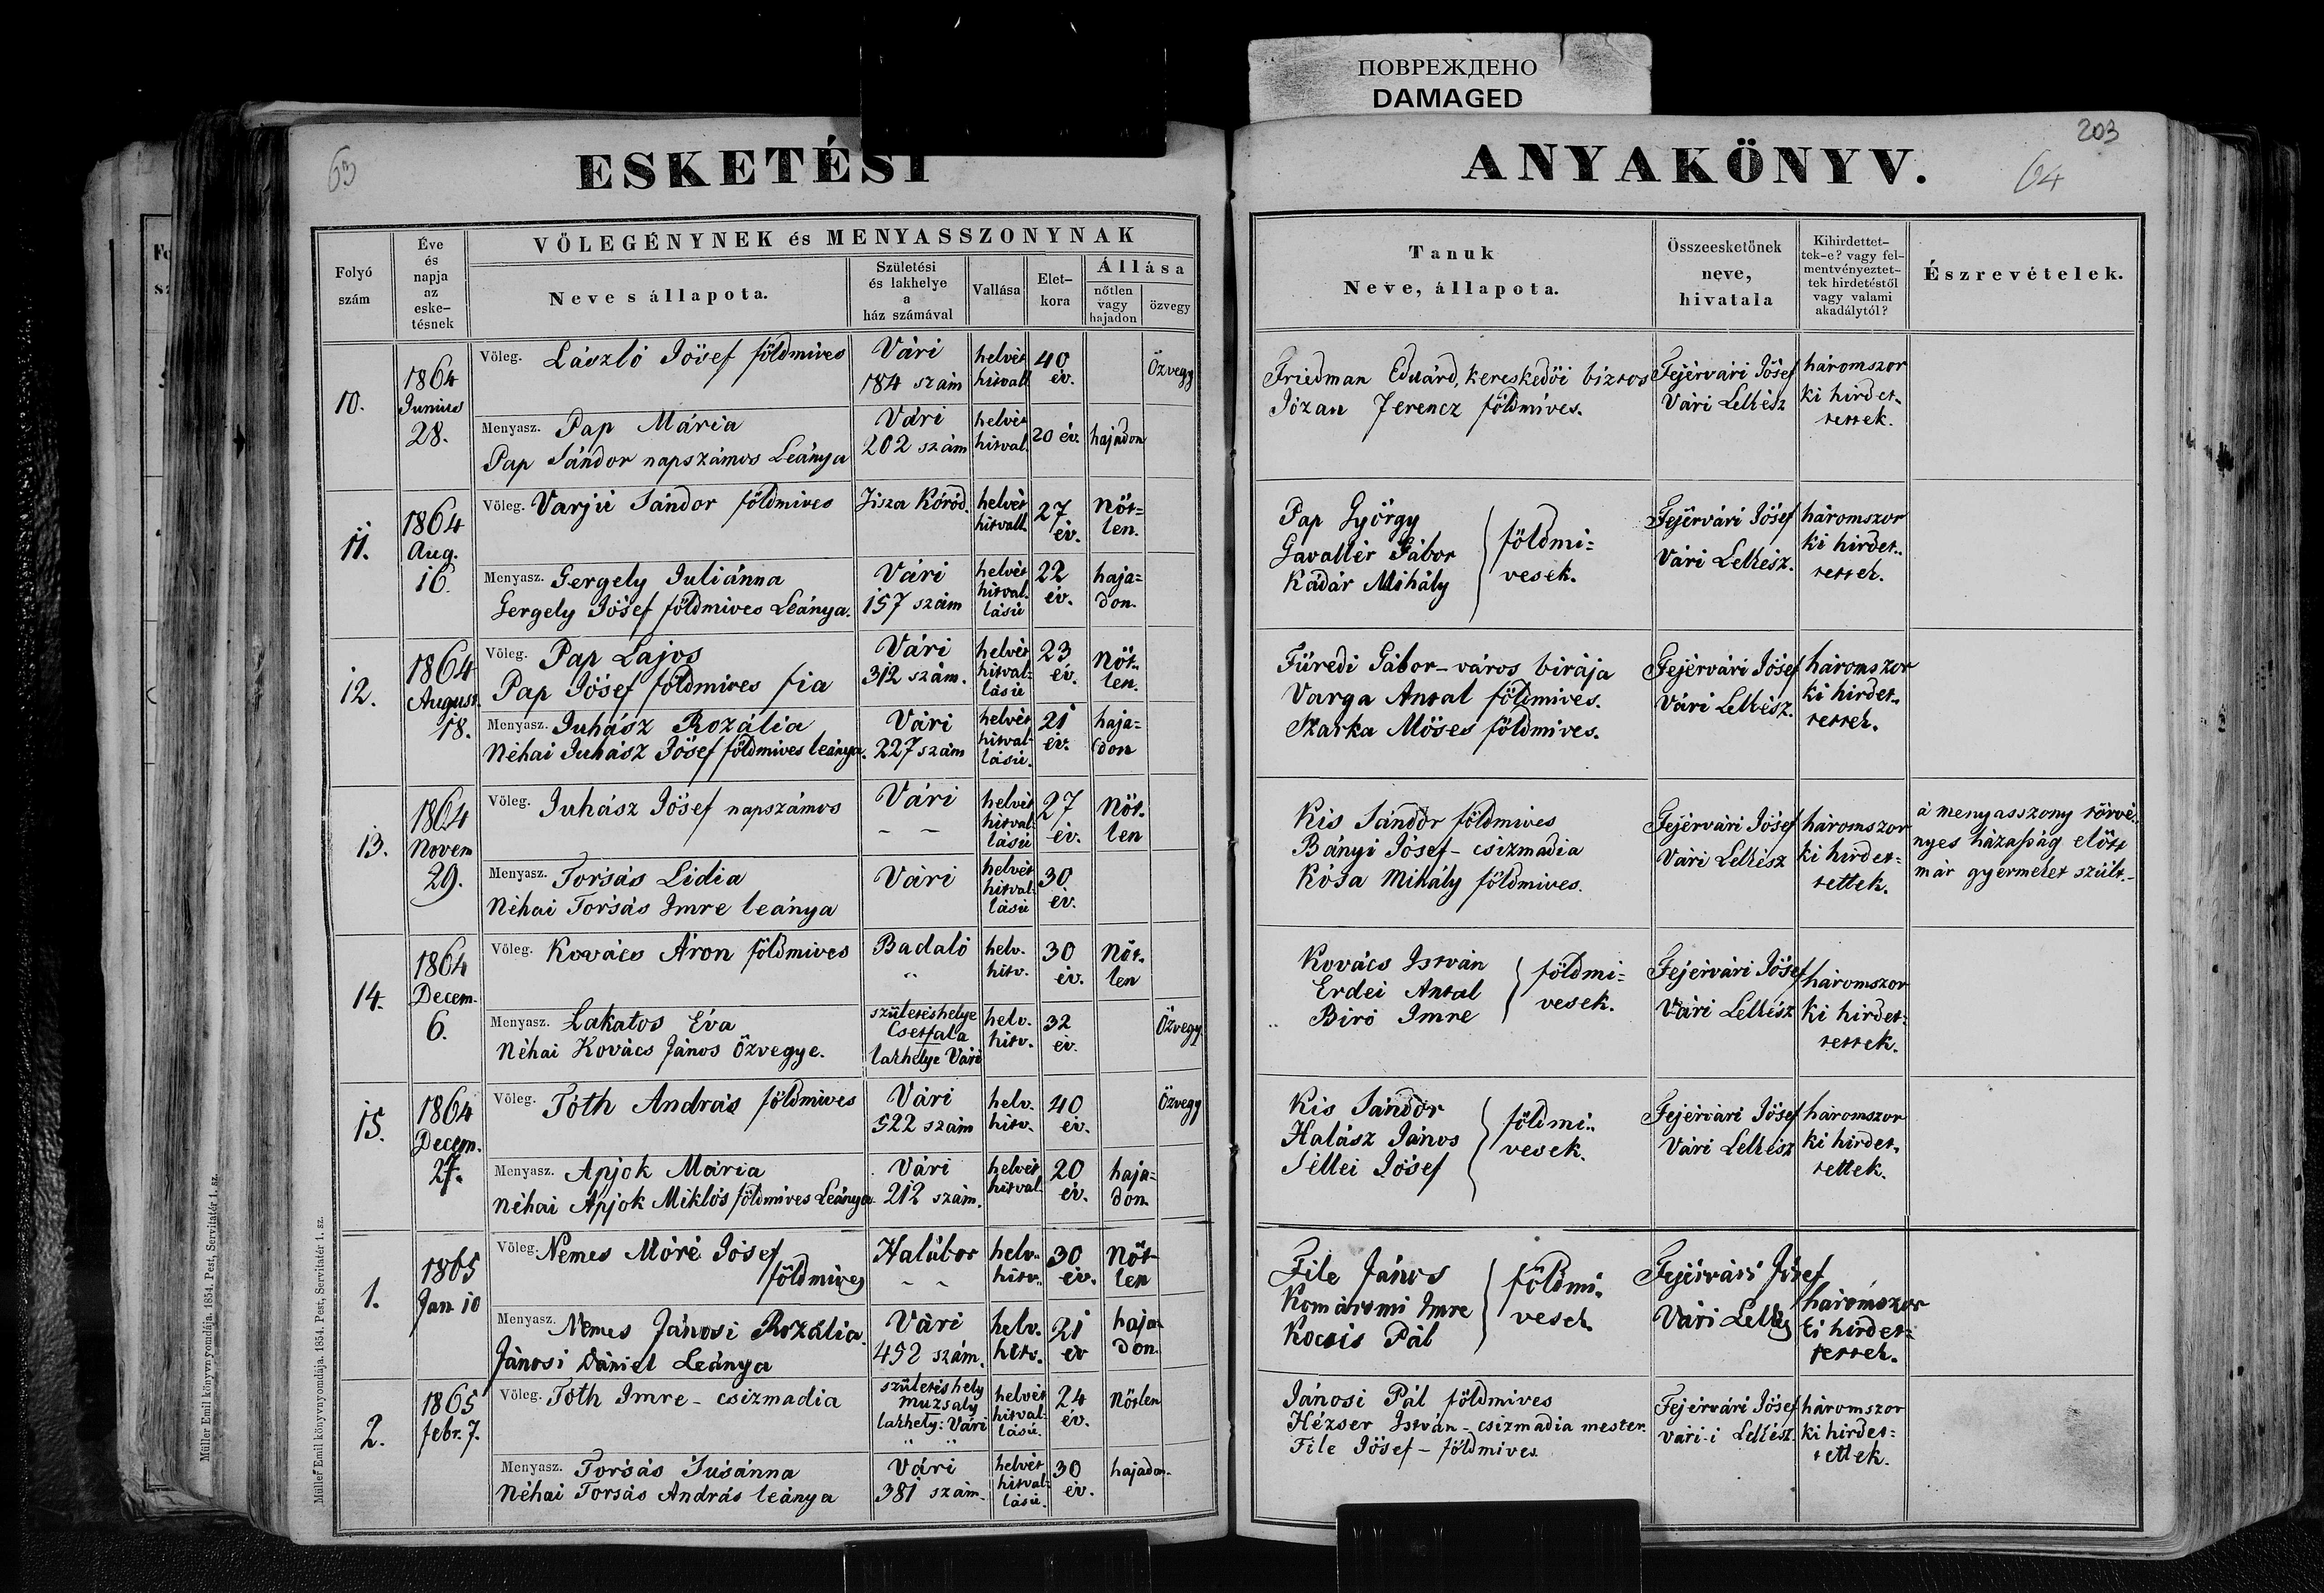 ПОВРЕЖДЕНО
DAMAGED
203
63
64
ESKETÉSI
ANYAKÖNYV.
Folyó szám
Éve és napja az eske- tésnek
VÖLEGÉNYNEK és MENYASSZONYNAK
Neve s állapota.
Születési és lakhelye a ház számával
Vallása
Elet- kora
Állása
nőtlen vagy hajadon
özvegy
Tanuk
Neve, állapota.
Összeesketőnek neve, hivatala
Kihirdettet- tek-e? vagy fel- mentvényeztet- tek hirdetéstől vagy valami akadálytól?
Észrevételek.
10.
1864 Junius 28.
Völeg. László Jósef földmives
Vári 184 szám
helvét hitvall
40 év.
Özvegy
Menyasz. Pap Mária
Pap Sándor napszámos Leánya
Vári 202 szám
helvét hitval.
20 év.
hajadon
Friedman Eduárd, kereskedői biztos
Józan Ferencz földmives.
Fejérvári Jósef
Vári Lelkész
háromszor
ki hirdet-
tettek.
11.
1864 Aug. 16.
Völeg. Varjú Sándor földmives
Tisza Kóród.
helvét hitvall.
27 év.
Nőt= len.
Menyasz. Gergely Juliánna
Gergely Jósef földmives Leánya.
Vári 157 szám
helvét hitval. lásu
22 év.
haja= don.
Pap György
Gavallér Gábor
Kádár Mihály
földmi= vesek.
Fejérvári Jósef
Vári Lelkész.
háromszor
ki hirdet-
tettek.
12.
1864 August. 18.
Völeg. Pap Lajos
Pap Jósef földmives fia
Vári 312 szám.
helvét hitval- lásu
23 év.
Nőt- len.
Menyasz. Juhász Rozália
Néhai Juhász Jósef földmives leánya.
Vári 227 szám
helvét hitval- lásu.
21 év.
haja= don
Füredi Gábor - város birája
Varga Antal földmives.
Szarka Móses földmives.
Fejérvári Jósef
Vári Lelkész.
háromszor
ki hirdet-
tettek.
13.
1864 Novem 29.
Völeg. Juhász Jósef napszámos
Vári
helvét hitval- lásu
27 év.
Nőt- len
Menyasz. Torsás Lidia
Néhai Torsás Imre leánya
Vári
helvét hitval- lásu
30 év.
Kis Sándor földmives
Bányi Jósef - csizmadia
Kósa Mihály földmives.
Fejérvári Jósef
Vári Lelkész
háromszor
ki hirdet=
tettek.
á menyasszony törvé-
nyes házasság előtt
már gyermeket szült.-
14.
1864 Decem. 6.
Völeg. Kovács Áron földmives
Badaló
helv. hitv.
30 év.
Nőt- len
Menyasz. Lakatos Éva
Néhai Kovács János Özvegye.
születéshelye Csetfala lakhelye Vári
helv. hitv.
32 év.
Özvegy
Kovács István
Erdei Antal
Biró Imre
földmi= vesek.
Fejérvári Jósef
Vári Lelkész
háromszor
ki hirdet-
tettek.
15.
1864 Decem. 27.
Völeg. Tóth András földmives
Vári 522 szám
helv. hitv.
40 év.
Özvegy
Menyasz. Apjok Mária
Néhai Apjok Miklós földmives Leánya
Vári 212 szám.
helvét hitval.
20 év.
haja= don.
Kis Sándor
Halász János
Séllei Jósef
földmi- vesek.
Fejérvári Jósef
Vári Lelkész
háromszor
ki hirdet-
tettek.
1.
1865 Jan 10
Völeg. Nemes Móré Jósef
földmives
Halábor
helv. hitv.
30 év.
Nőt- len
Menyasz. Nemes Jánosi Rozália.
Jánosi Dániel Leánya
Vári 452 szám.
helv. hitv.
21 év
haja- don.
File János
Komáromi Imre
Kocsis Pál
földmi- vesek.
Fejérvári Jósef
Vári
háromszor
ki hirdet=
tettek.
2.
1865 febr. 7.
Völeg. Tóth Imre - csizmadia
születéshely Muzsaly lakhely: Vári
helvét hitval- lásu.
24 év.
Nőtlen
Menyasz. Torsás Susánna
Néhai Torsás András leánya
Vári 381 szám.
helvét hitval- lásu.
30 év.
hajadon.
Jánosi Pál földmives
Hézser István - csizmadia mester.
File Jósef - földmives
Fejérvári Jósef
vári-i Lelkész.
háromszor
ki hirdet=
tettek.
Müller Emil könyvnyomdája. 1854. Pest, Servitatér 1. sz.
Müller Emil könyvnyomdája. 1854. Pest, Servitatér 1. sz.